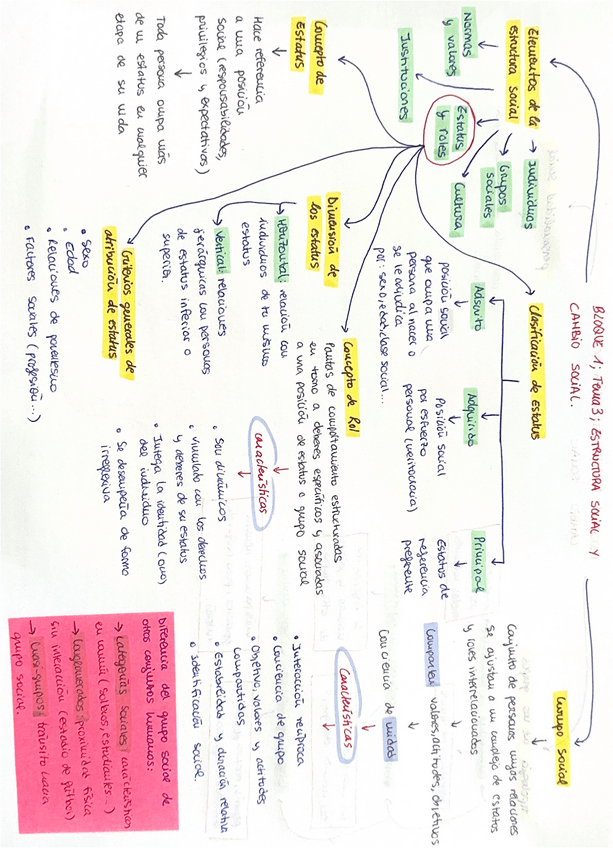 BLOQUE 1; Tema 3; ESTRUCTURA SOCIAL Y
CAMBIO SOCIAL.
Elementos de la
estructura social
→ Individuos
Grupos
sociales
Cultura
Estatus
y roles
Instituciones
Normas
y valores
Clasificación de Estatus
Adscrito
posición social
que ocupa una
persona al nacer o
se le adjudica
por: sexo, edad, clase social...
Adquirido
Posición social
por esfuerzo
personal (meritocracia)
Principal
Estatus de
referencia
preferente
Concepto de
Estatus
Hace referencia
a una posición
social (responsabilidades,
privilegios y expectativas)
Toda persona ocupa más
de un estatus en cualquier
etapa de su vida
Dimensión de
los estatus
Horizontal: relación con
individuos de tu mismo
estatus
Vertical: relaciones
jerárquicas con personas
de estatus inferior o
superior.
Criterios generales de
atribución de estatus
• Sexo
• Edad
• Relaciones de parentesco
• Factores sociales (profesión...)
Concepto de Rol
Pautas de comportamiento estructuradas
en torno a deberes específicos y asociadas
a una posición de estatus o grupo social
características
• Son dinámicos
• Vinculado con los derechos
y deberes de su estatus
• Integra la identidad (                )
del individuo
• Se desempeña de forma
irreflexiva
Grupo social
Conjunto de personas cuyas relaciones
se ajustan a un complejo de estatus
y roles interrelacionados
Comparten valores, actitudes, objetivos
Conciencia de unidad
Características
• Interacción recíproca
• Conciencia de grupo
• Objetivo, valores y actitudes
compartidas
• Estabilidad y duración relativa
• Identificación social.
Diferencia del grupo social de
otros conjuntos humanos:
→ Categorías sociales: características
en común (solteros, estudiantes...)
→ Conglomerados: proximidad física
sin interacción (estadio de fútbol)
→ Cuasi-grupos: tránsito hacia
grupo social.